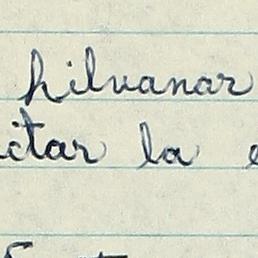 hilvanar
ctar la